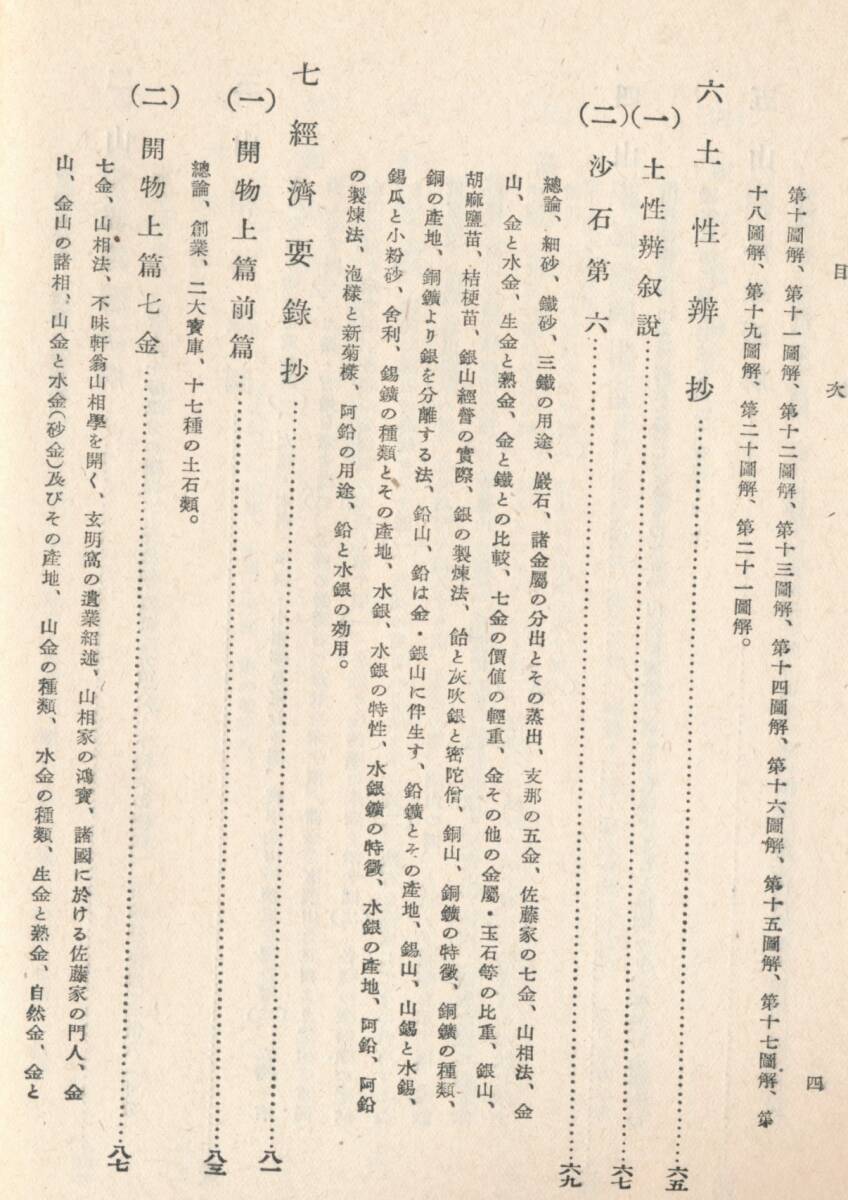 目次
四
第十圖解、第十一圖解、第十二圖解、第十三圖解、第十四圖解、第十六圖解、第十五圖解、第十七圖解、第
十八圖解、第十九圖解、第二十圖解、第二十一圖解。
六 土性辨抄……六五
(一) 土性辨叙說……六七
(二) 沙石第六……六九
總論、細砂、鐵砂、三鐵の用途、巖石、諸金屬の分出とその蒸出、支那の五金、佐藤家の七金、山相法、金
山、金と水金、生金と熟金、金と鐵との比較、七金の價値の輕重、金その他の金屬・玉石等の比重、銀山、
胡麻鹽苗、桔梗苗、銀山經營の實際、銀の製煉法、飴と灰吹銀と密陀僧、銅山、銅鑛の特徵、銅鑛の種類、
銅の產地、銅鑛より銀を分離する法、鉛山、鉛は金・銀山に伴生す、鉛鑛とその產地、錫山、山錫と水錫、
錫瓜と小粉砂、舍利、錫鑛の種類とその產地、水銀、水銀の特性、水銀鑛の特徵、水銀の產地、阿鉛、阿鉛
の製煉法、泡樣と新菊樣、阿鉛の用途、鉛と水銀の効用。
七 經濟要錄抄……八一
(一) 開物上篇前篇……八三
總論、創業、二大寶庫、十七種の土石類。
(二) 開物上篇七金……八七
七金、山相法、不昧軒翁山相學を開く、玄明窩の遺業紹述、山相家の鴻寶、諸國に於ける佐藤家の門人、金
山、金山の諸相、山金と水金(砂金)及びその產地、山金の種類、水金の種類、生金と熟金、自然金、金と